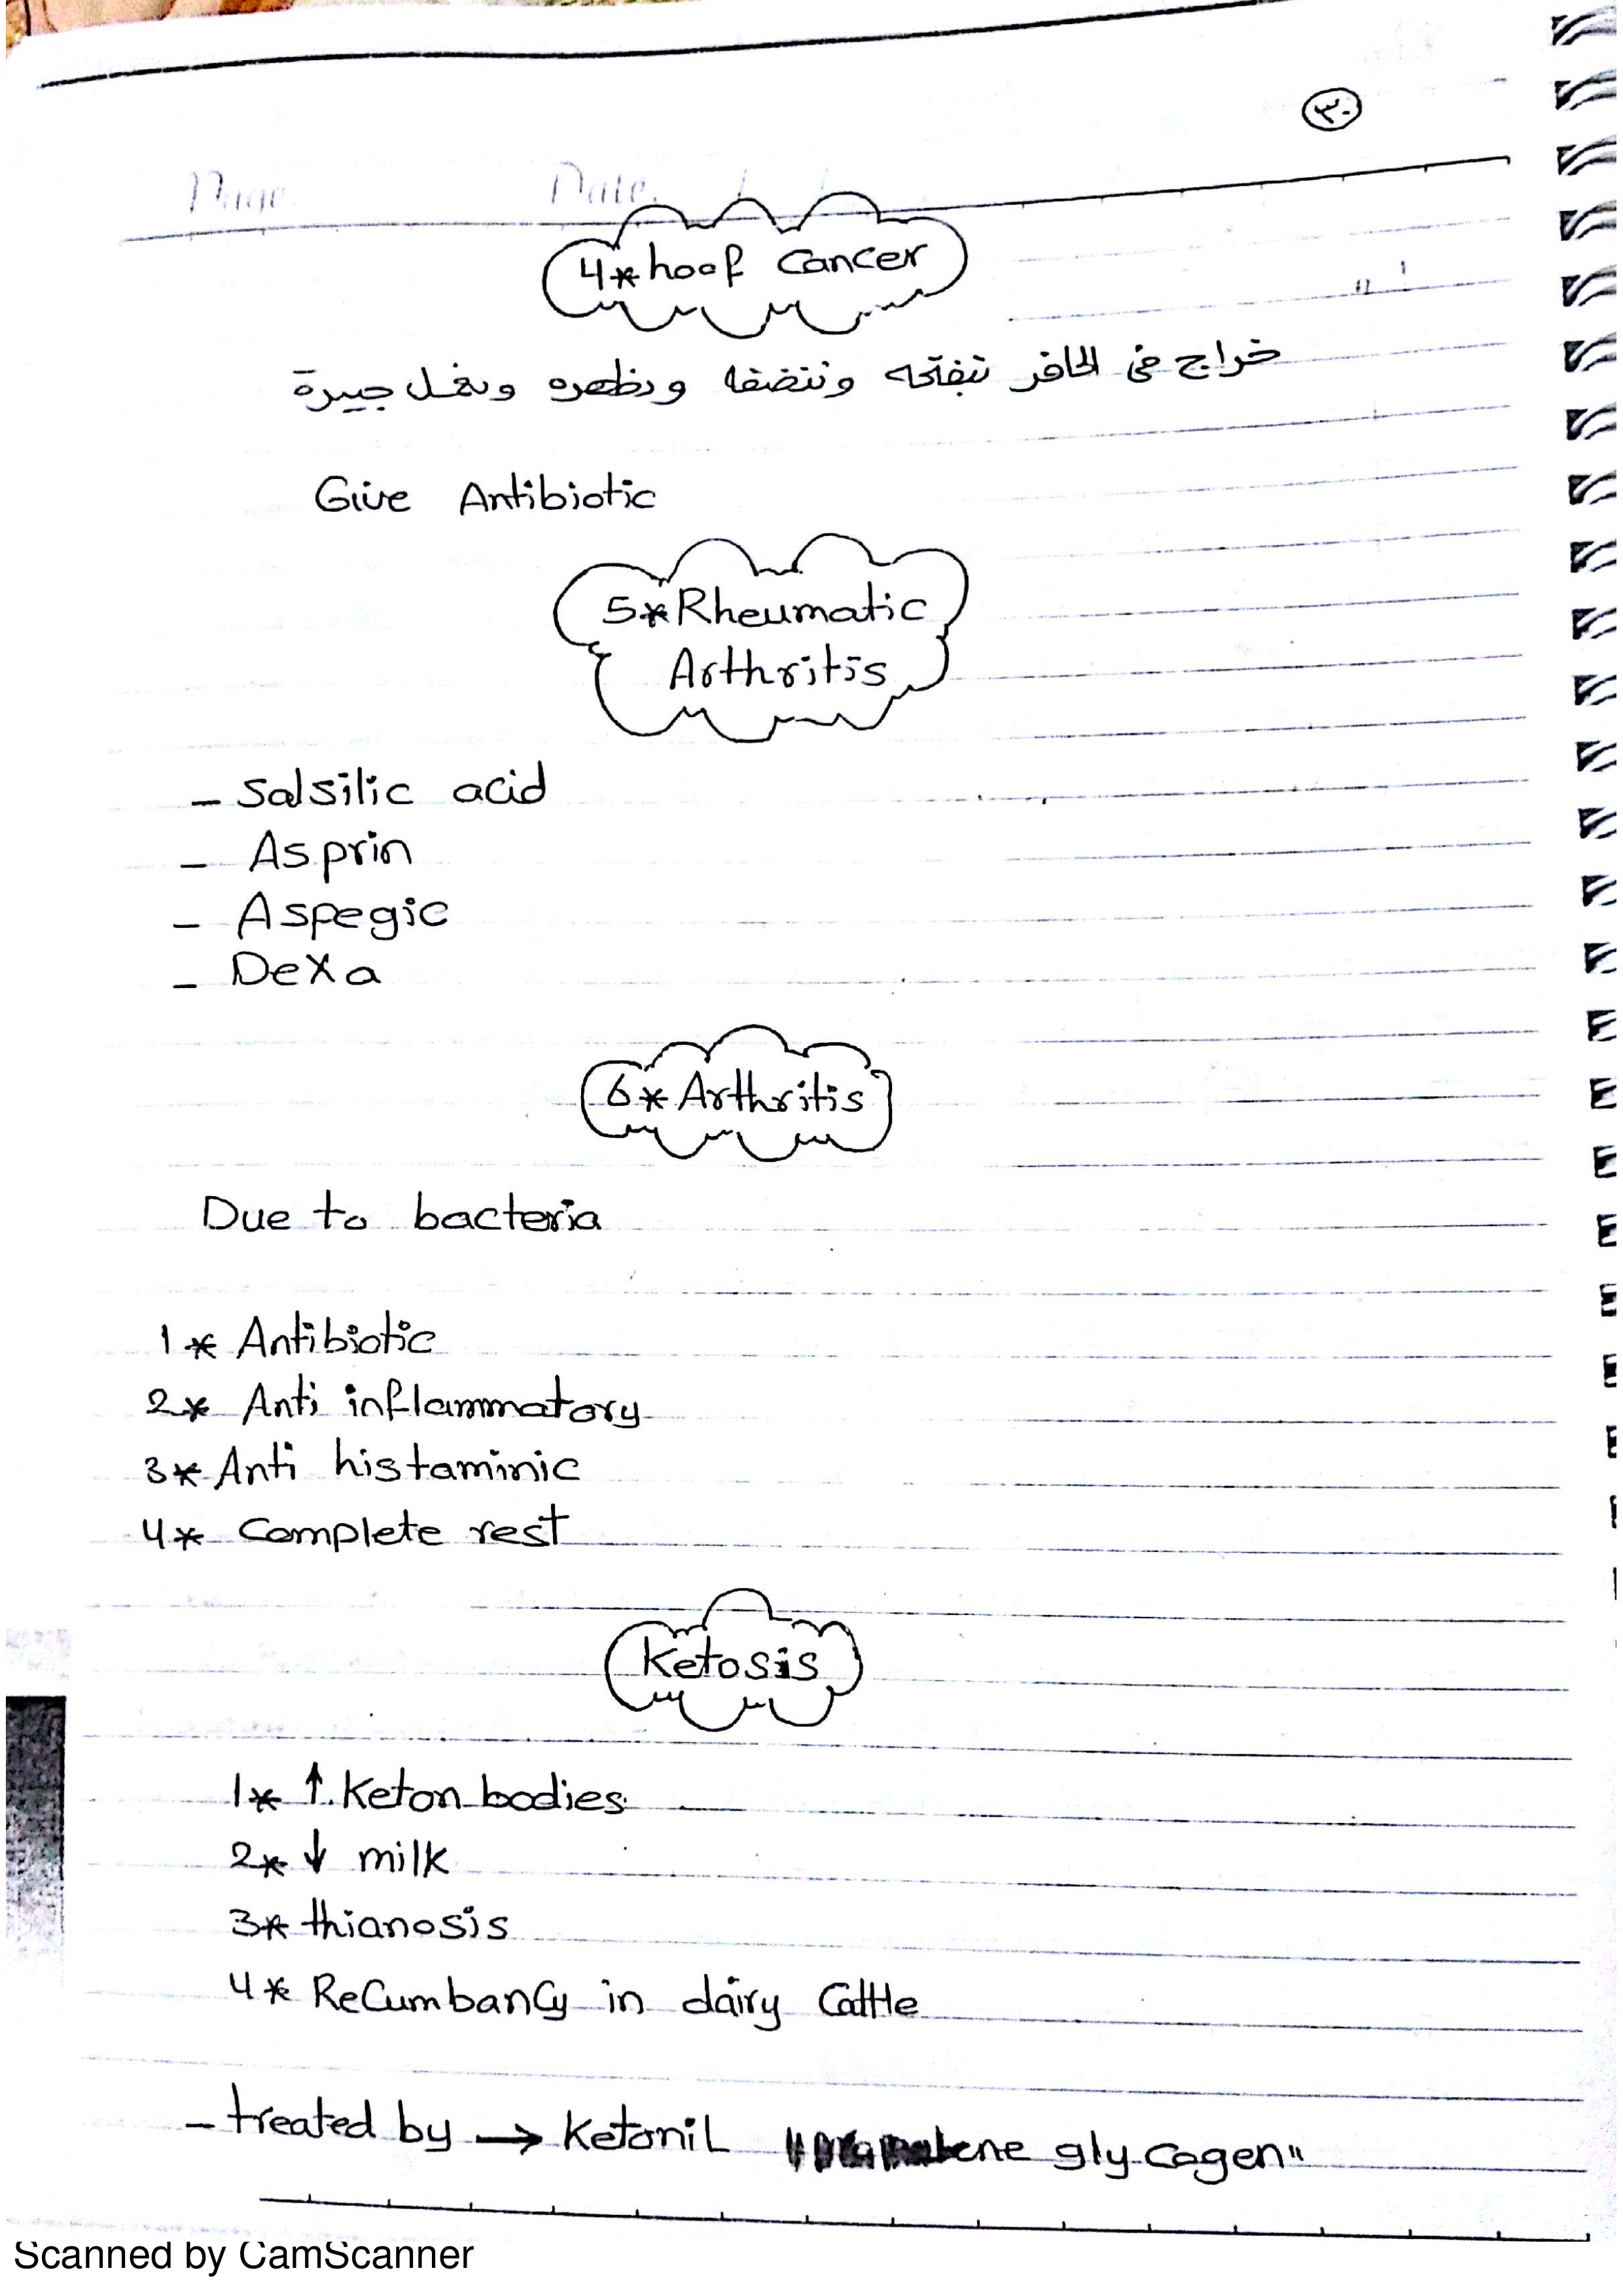 ٣٠
Page Date
4* hoof Cancer
خراج في الحافر نتفتحه وننتضفه ونظهره ونعمل جبيرة
Give Antibiotic
5* Rheumatic
Arthritis
- Salsilic acid
- Asprin
- Aspegic
- Dexa
6* Arthritis
Due to bacteria
1* Antibiotic
2* Anti inflammatory
3* Anti histaminic
4* Complete rest
Ketosis
1* ↑ Keton bodies
2* ↓ milk
3* thianosis
4* Recumbancy in dairy Cattle
- treated by → Ketonil " glycogen"
Scanned by CamScanner